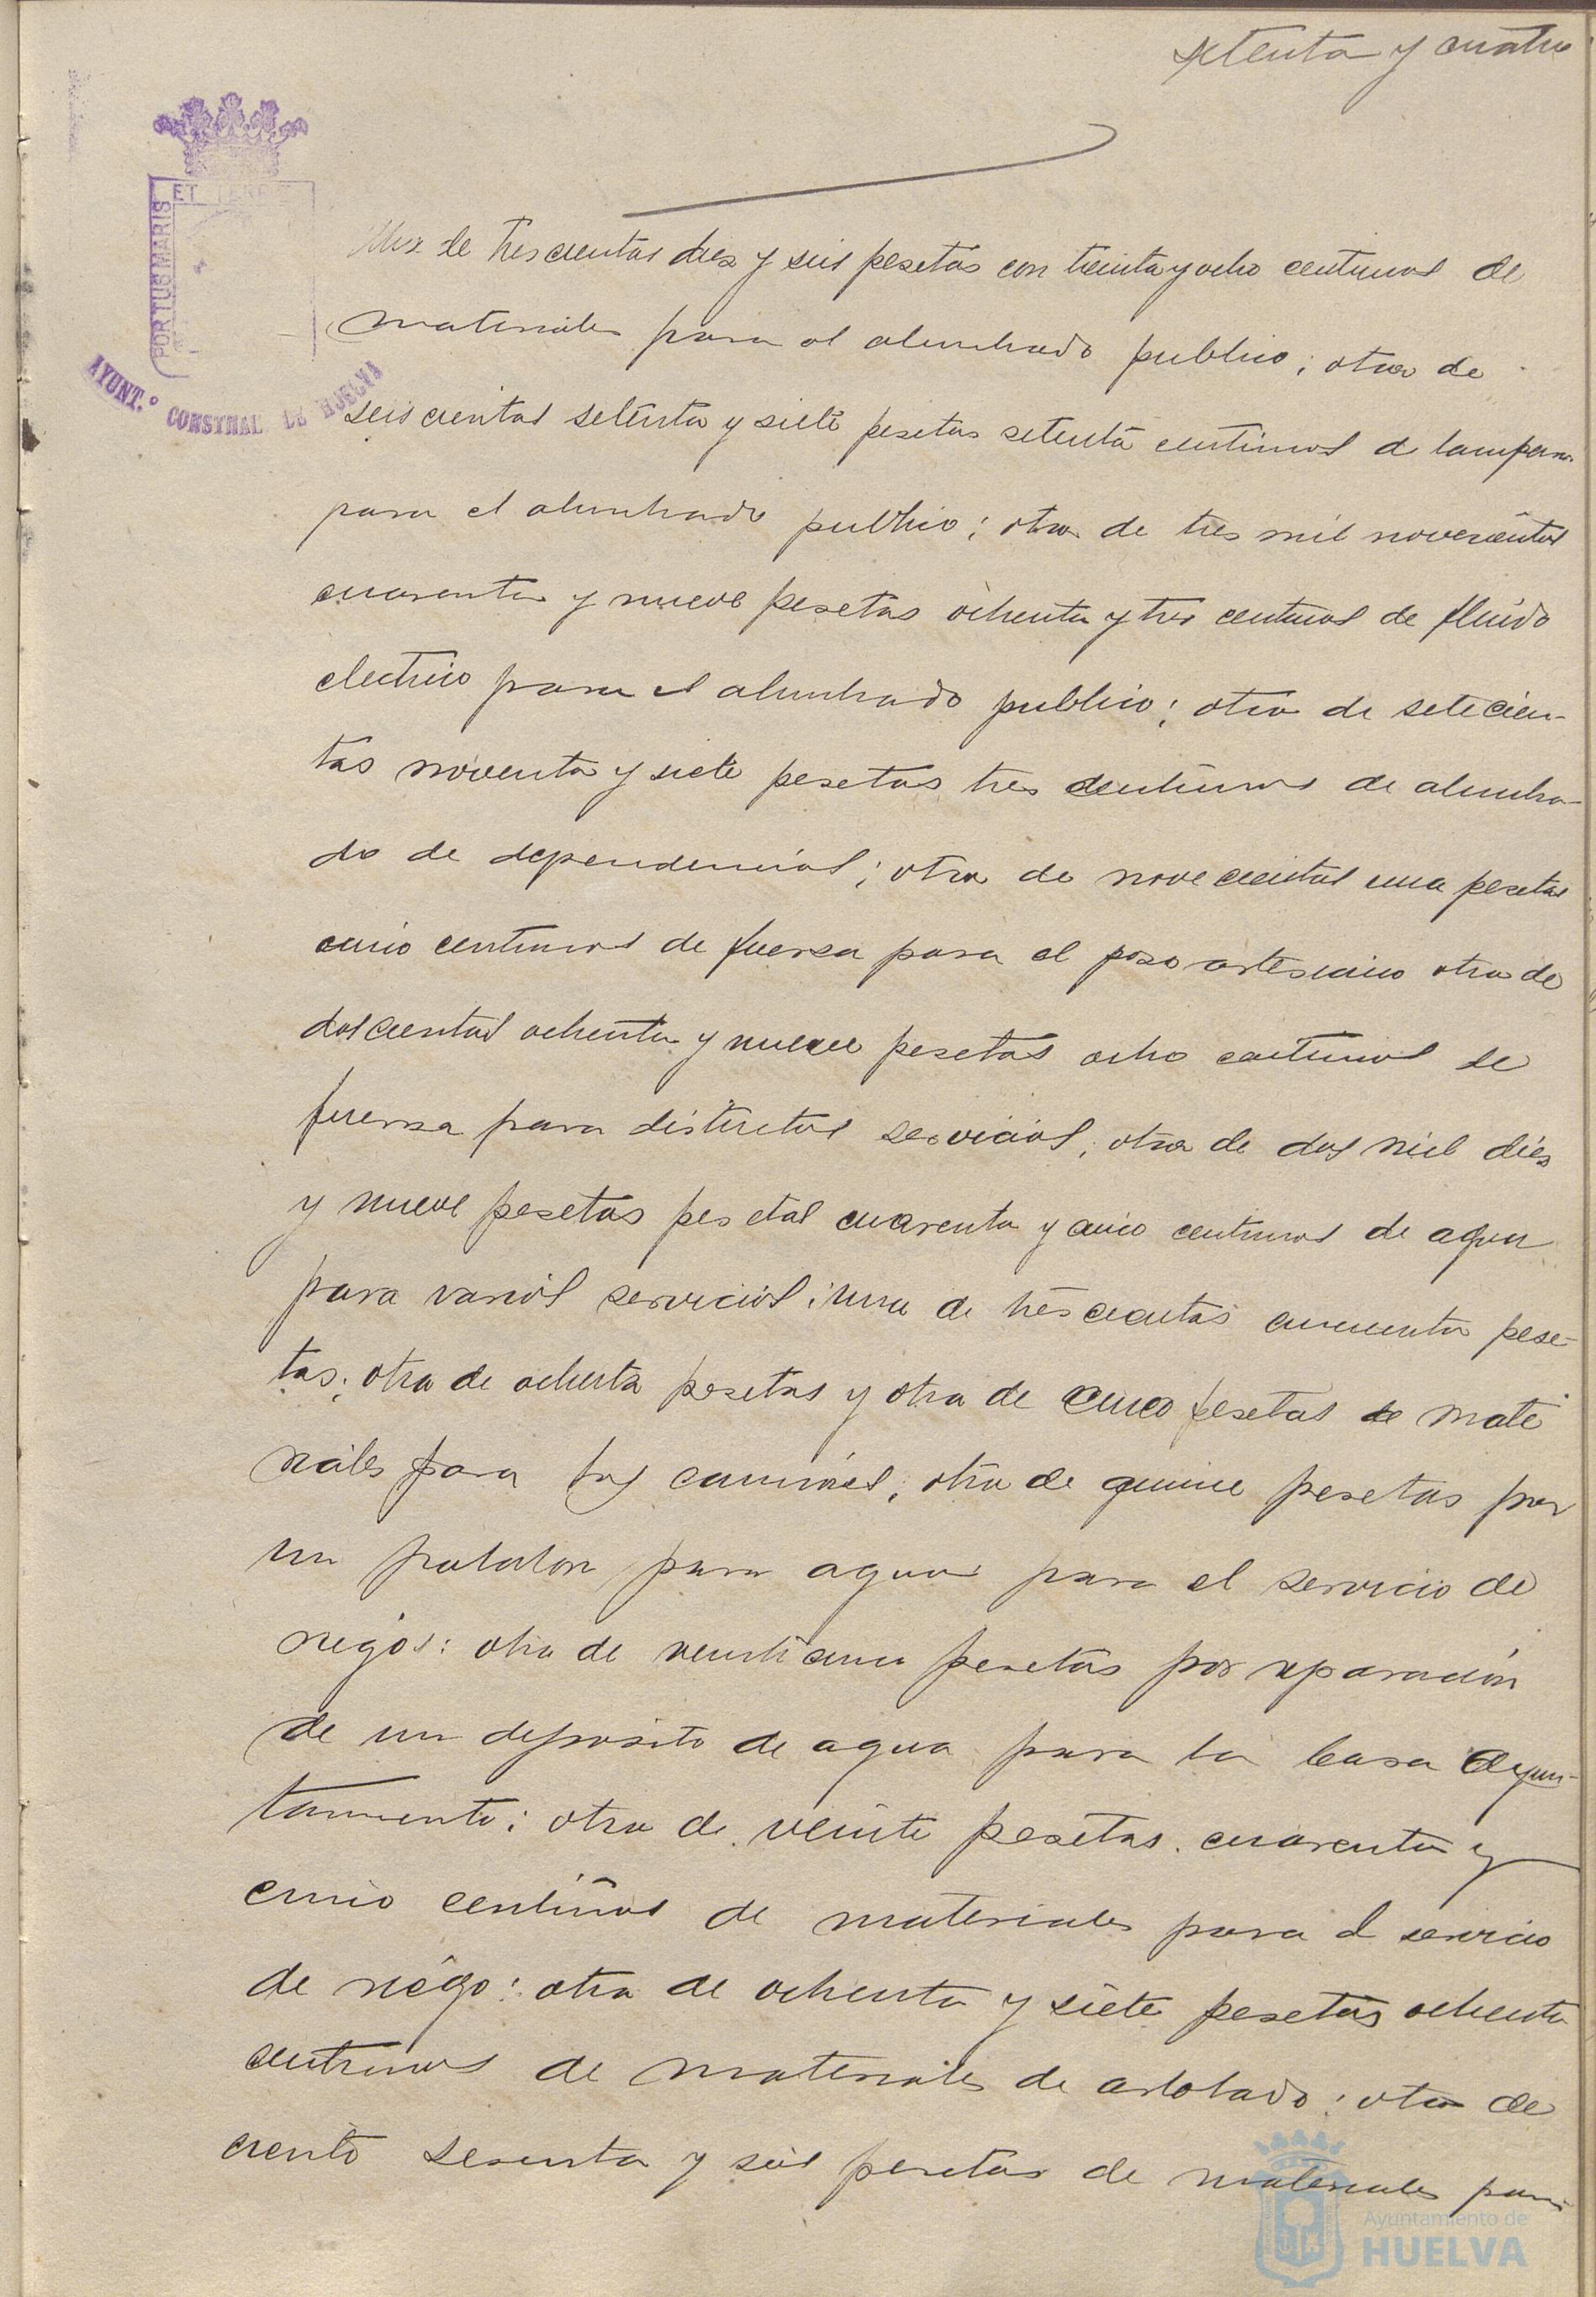 setenta y cuatro
ET TERRE
PORTUS MARIS
AYUNT.º CONSTNAL DE HUELVA
de trescientas diez y seis pesetas con treinta y ocho centimos de
materiales para el alumbrado publico; otra de
seiscientas setenta y siete pesetas setenta centimos de lamparas
para el alumbrado publico; otra de tres mil novecientas
cuarenta y nueve pesetas ochenta y tres centimos de fluido
electrico para el alumbrado publico; otra de setecien-
tas noventa y siete pesetas tres centimos de alumbra-
do de dependencias; otra de novecientas una pesetas
cinco centimos de fuerza para el pozo artesiano otra de
doscientas ochenta y nueve pesetas ocho centimos de
fuerza para distintos servicios; otra de dos mil diez
y nueve pesetas pesetas cuarenta y cinco centimos de agua
para varios servicios; una de trescientas cincuenta pese-
tas; otra de ochenta pesetas y otra de cinco pesetas de mate
riales para los camiones; otra de quince pesetas por
un para agua para el servicio de
riegos: otra de veinticinco pesetas por reparación
de un deposito de agua para la Casa Ayun-
tamiento; otra de veinte pesetas cuarenta y
cinco centimos de materiales para el servicio
de riego: otra de ochenta y siete pesetas ochenta
centimos de materiales de arbolado: otra de
ciento sesenta y seis pesetas de materiales para
Ayuntamiento de
HUELVA